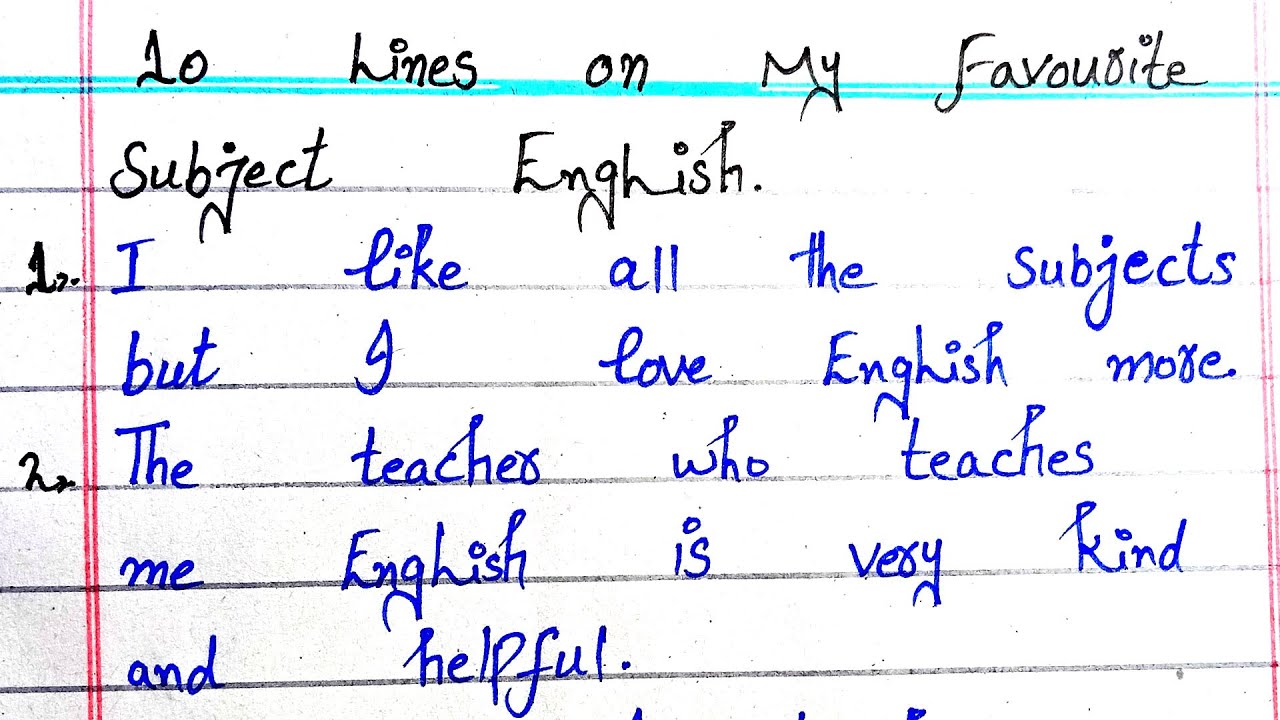 10 Lines on My Favourite
Subject English.
1. I like all the subjects
but I love English more.
2. The teacher who teaches
me English is very kind
and helpful.